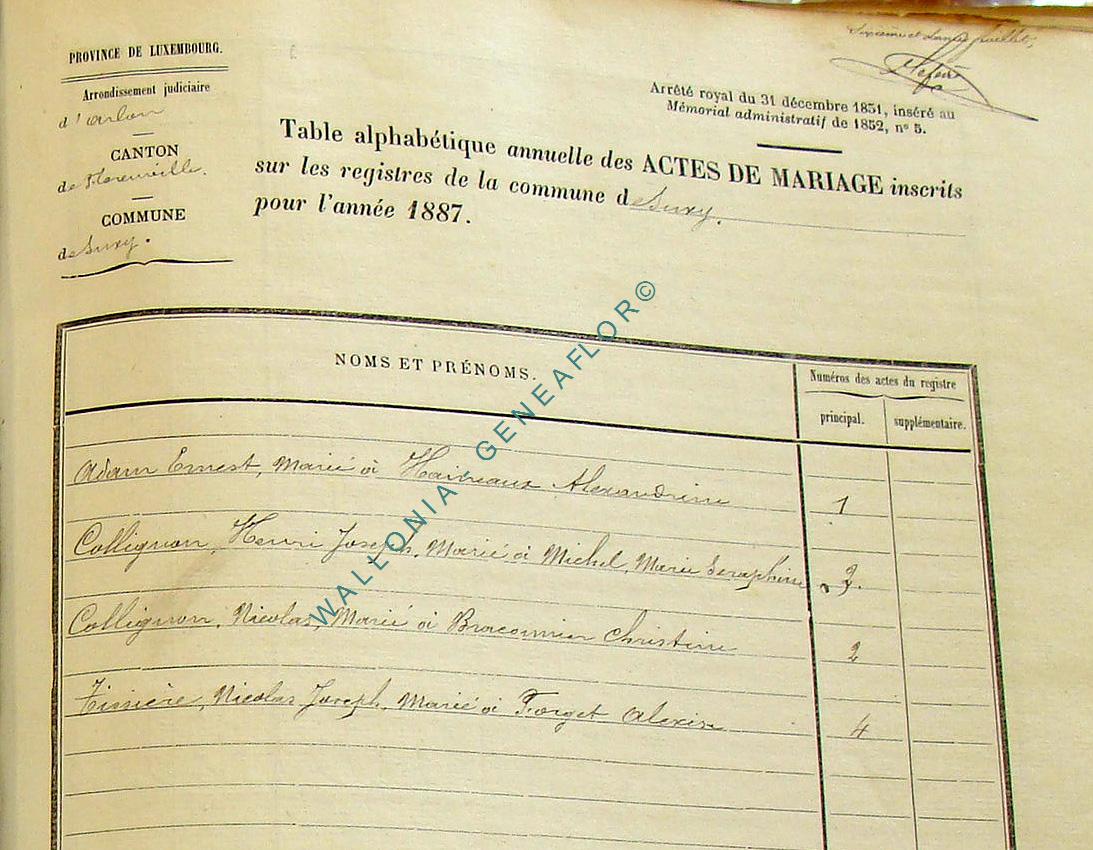 PROVINCE DE LUXEMBOURG.
Arrondissement judiciaire
d'arlon
CANTON
de Florenville.
COMMUNE
de Suxy.
Sixième et dernier feuillet,
Arrêté royal du 31 décembre 1851, inséré au
Mémorial administratif de 1852, n° 5.
Table alphabétique annuelle des ACTES DE MARIAGE inscrits
sur les registres de la commune de Suxy.
pour l'année 1887.
NOMS ET PRÉNOMS.
Numéros des actes du registre
principal.
supplémentaire.
Adam Ernest, Marié à Alexandrine 1
Collignon, Henri Joseph, Marié à Michel, Marie Seraphine 3.
Collignon, Nicolas, Marié à Braconnier Christine 2
Tissière, Nicolas Joseph, Marié à Forget Alexise 4
WALLONIA - GENEAFLOR©